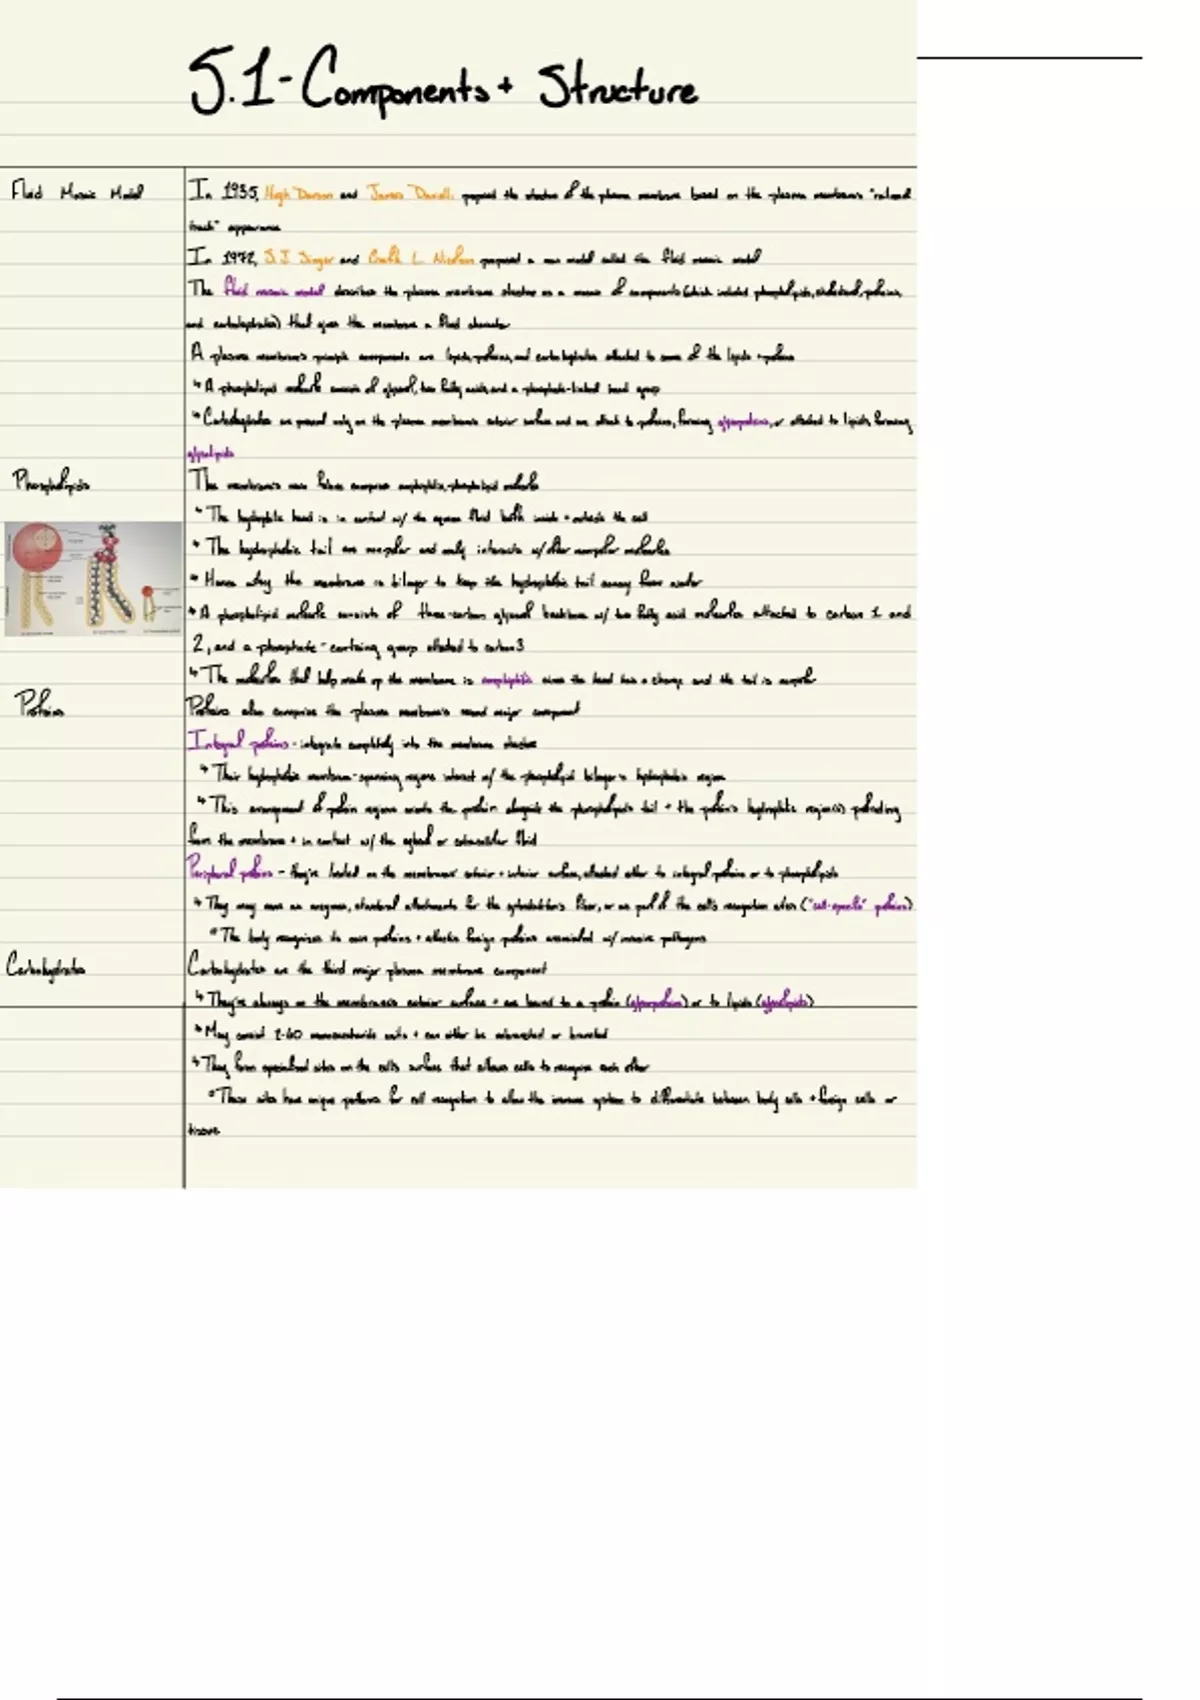 5.1 - Components + Structure
Fluid Mosaic Model
In 1935, Hugh Davson and James Danielli proposed the structure of the plasma membrane based on the plasma membrane's "railroad
track" appearance
In 1972, S.J. Singer and Garth L. Nicolson proposed a new model called the fluid mosaic model
The fluid mosaic model describes the plasma membrane structure as a mosaic of components (which includes phospholipids, cholesterol, proteins,
and carbohydrates) that gives the membrane a fluid character
A plasma membrane's principle components are lipids, proteins, and carbohydrates attached to some of the lipids + proteins
↳ A phospholipid molecule consists of glycerol, two fatty acids, and a phosphate-linked head group
↳ Carbohydrates are present only on the plasma membrane's exterior surface and are attach to proteins, forming glycoproteins, or attached to lipids, forming
glycolipids
Phospholipids
The membrane's main fabric comprise amphiphilic, phospholipid molecules
↳ The hydrophilic head is in contact w/ the aqueous fluid both inside + outside the cell
↳ The hydrophobic tail are nonpolar and only interacts w/ other nonpolar molecules
↳ Hence why the membrane is bilayer to keep the hydrophobic tail away from water
↳ A phospholipid molecule consists of three-carbon glycerol backbone w/ two fatty acid molecules attached to carbon 1 and
2, and a phosphate-containg group attached to carbon 3
↳ The molecules that help make up the membrane is amphiphilic since the head has a charge and the tail is nonpolar
Proteins
Proteins also comprise the plasma membrane's second major component
Integral proteins - integrate completely into the membrane structure
↳ Their hydrophobic membrane-spanning regions interact w/ the phospholipid bilayer's hydrophobic region
↳ This arrangement of protein regions orients the protein alongside the phospholipid's tail + the protein's hydrophilic region(s) protruding
from the membrane + in contact w/ the cytosol or extracellular fluid
Peripheral proteins - they're located on the membranes' exterior + interior surface, attached either to integral proteins or to phospholipids
↳ They may serve as enzymes, structural attachments for the cytoskeleton's fiber, or as part of the cell's recognition sites ("cell-specific" proteins)
° The body recognizes its own proteins + attacks foreign proteins associated w/ invasive pathogens
Carbohydrates
Carbohydrates are the third major plasma membrane component
↳ They're always on the membrane's exterior surface + are bound to a protein (glycoproteins) or to lipids (glycolipids)
↳ May consist 2-60 monosaccharide units + can either be unbranched or branched
↳ They form specialized sites on the cell's surface that allows cells to recognize each other
° These sites have unique patterns for cell recognition to allow the immune system to differentiate between body cells + foreign cells or
tissue